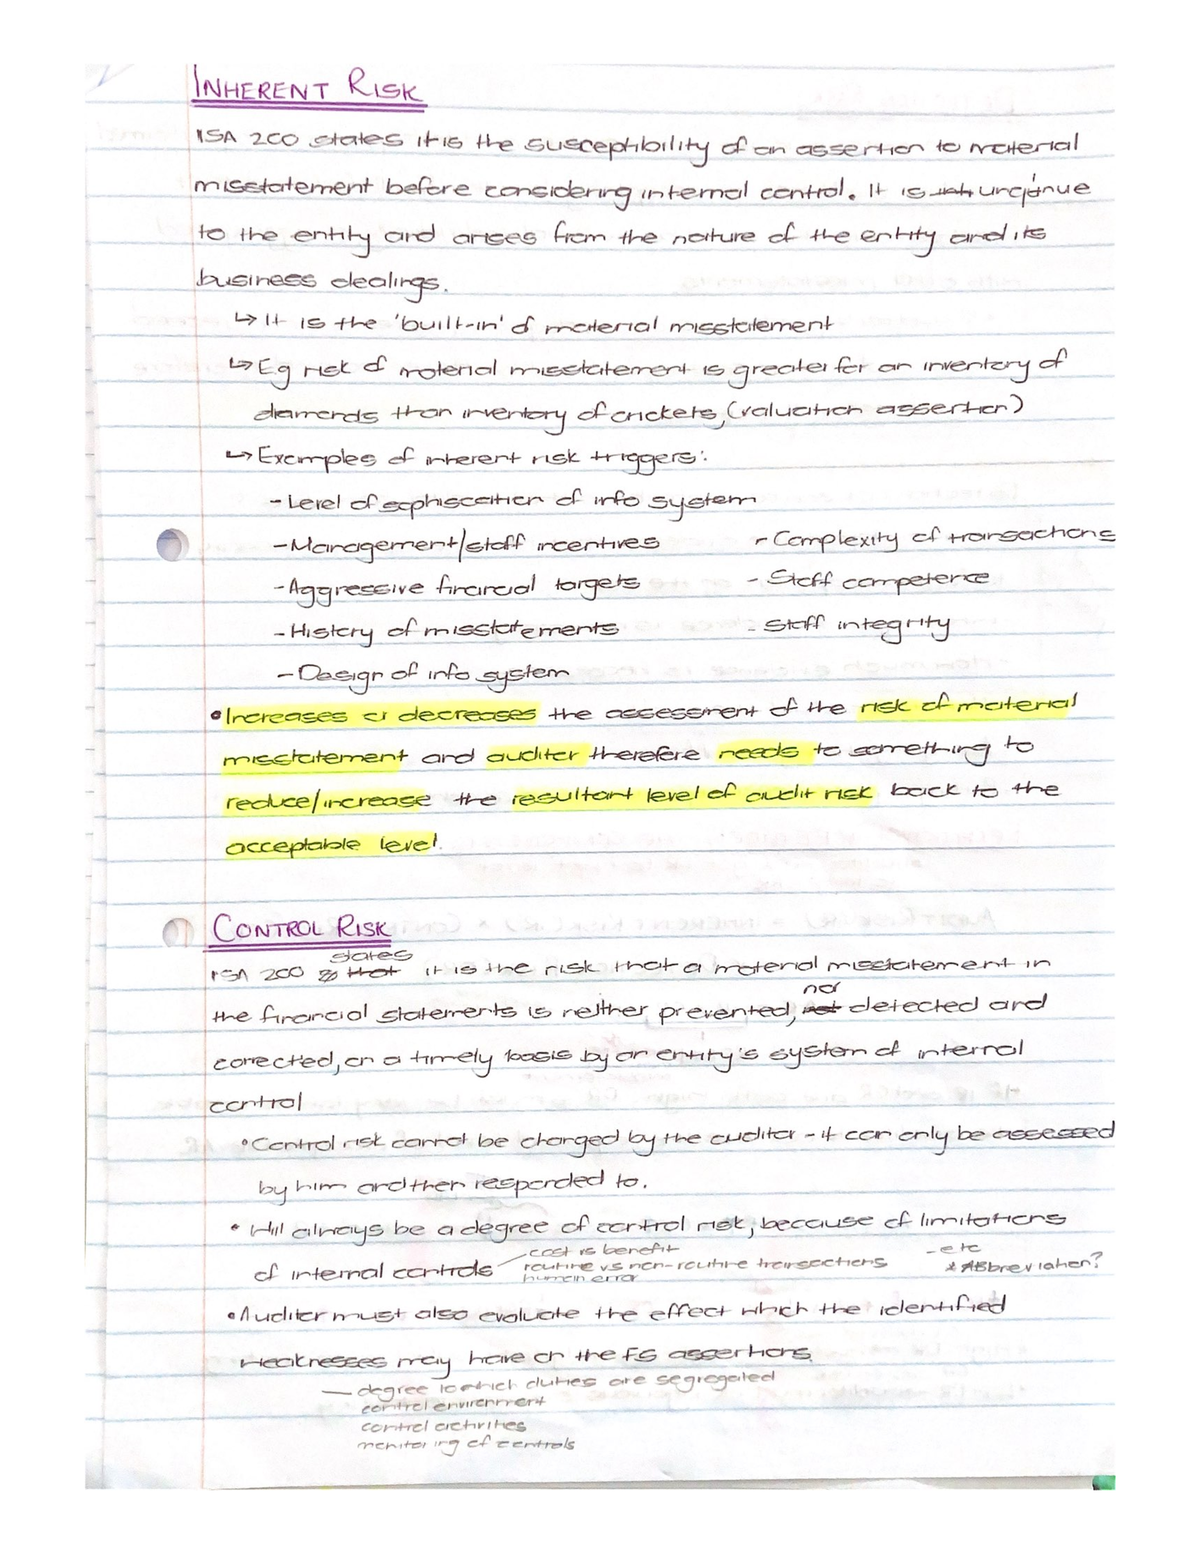 INHERENT RISK
ISA 200 states it is the susceptibility of an assertion to material
misstatement before considering internal control. It is unqinue
to the entity and arises from the nature of the entity and its
business dealings.
↳ It is the 'built-in' of material misstatement
↳ Eg risk of material misstatement is greater for an inventory of
diamonds than inventory of crickets, (valuation assertion)
↳ Examples of inherent risk triggers:
- Level of sophiscation of info system
- Management/staff incentives - Complexity of transactions
- Aggressive financial targets - Staff competence
- History of misstatements - Staff integrity
- Design of info system
• Increases or decreases the assessment of the risk of material
misstatement and auditor therefore needs to something to
reduce/increase the resultant level of audit risk back to the
acceptable level.
CONTROL RISK
states
ISA 200 that it is the risk that a material misstatement in
nor
the financial statements is neither prevented, not detected and
corrected, on a timely basis by an entity's system of internal
control
• Control risk cannot be changed by the auditor - it can only be assessed
by him and then responded to.
• Will always be a degree of control risk, because of limitations
cost is benefit - etc
of internal controls routine vs non-routine transactions * ABbreviation?
human error
• Auditor must also evaluate the effect which the identified
weaknesses may have on the FS assertions
— degree to which duties are segregated
control environment
control activities
monitoring of controls